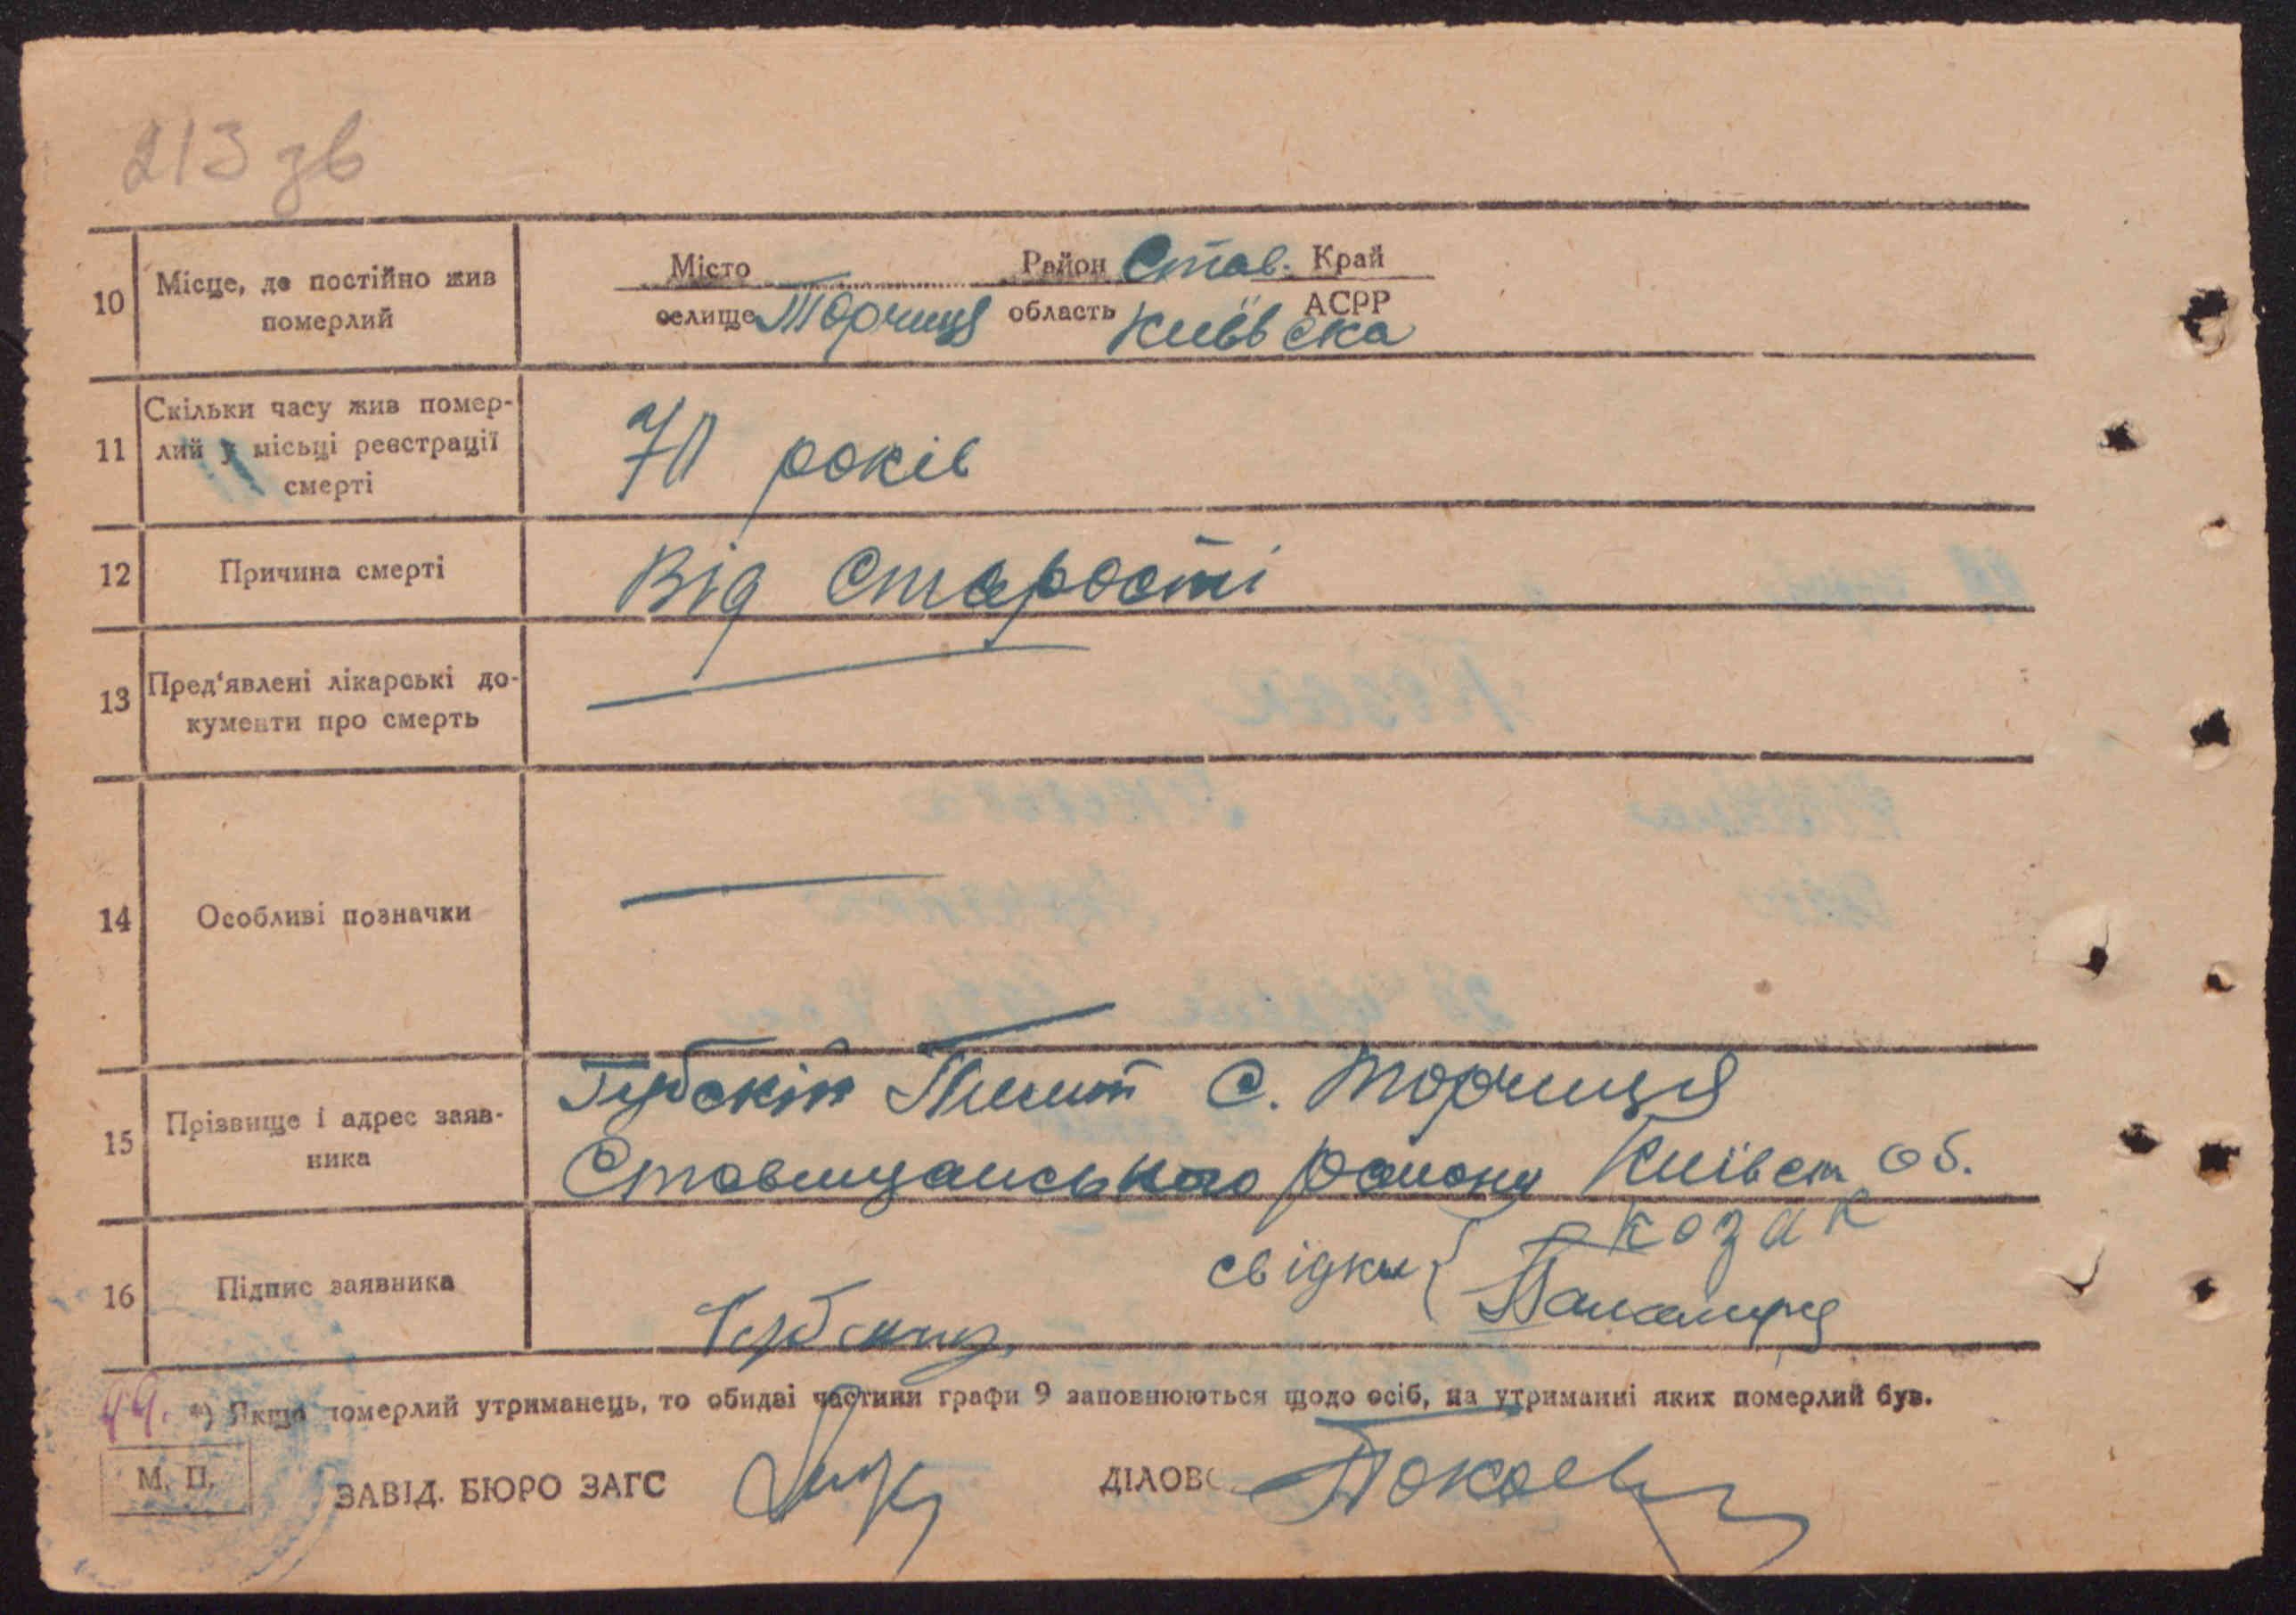 213 зв
10 Місце, де постійно жив померлий
Місто Район Став. Край
селище Торчиця область Київська АСРР
11 Скільки часу жив помер-
лий у місьці реєстрації
смерті
70 років
12 Причина смерті Від Старості
13 Пред'явлені лікарські до-
кументи про смерть
14 Особливі позначки
15 Прізвище і адрес заяв-
ника
Губскій Пилип С. Торчиця
Ставищанського району Київськ об.
16 Підпис заявника
свідки { Козак
*) Якщо померлий утриманець, то обидві частини графи 9 заповнюються щодо осіб, на утриманні яких померлий був.
М. П.
ЗАВІД. БЮРО ЗАГС ДІЛОВО